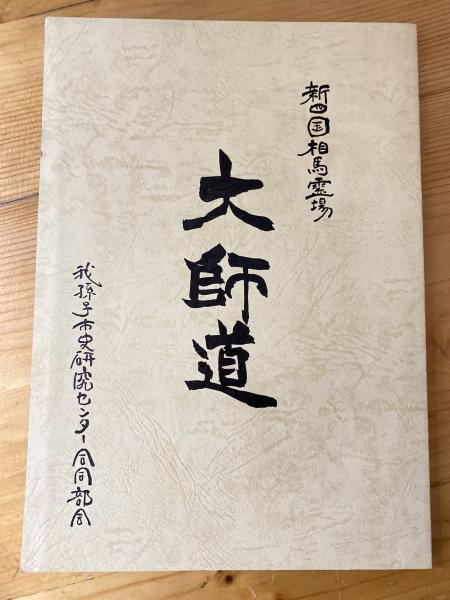 新四国相馬霊場
大師道
我孫子市史研究センター合同部会